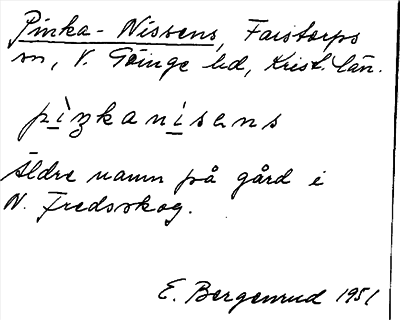 Pinka-Nissens, Farstorps
sn, V. Göinge hd, Krist. län.
pìŋkanisens
Äldre namn på gård i
N. Fredsskog.
E. Bergenrud 1951